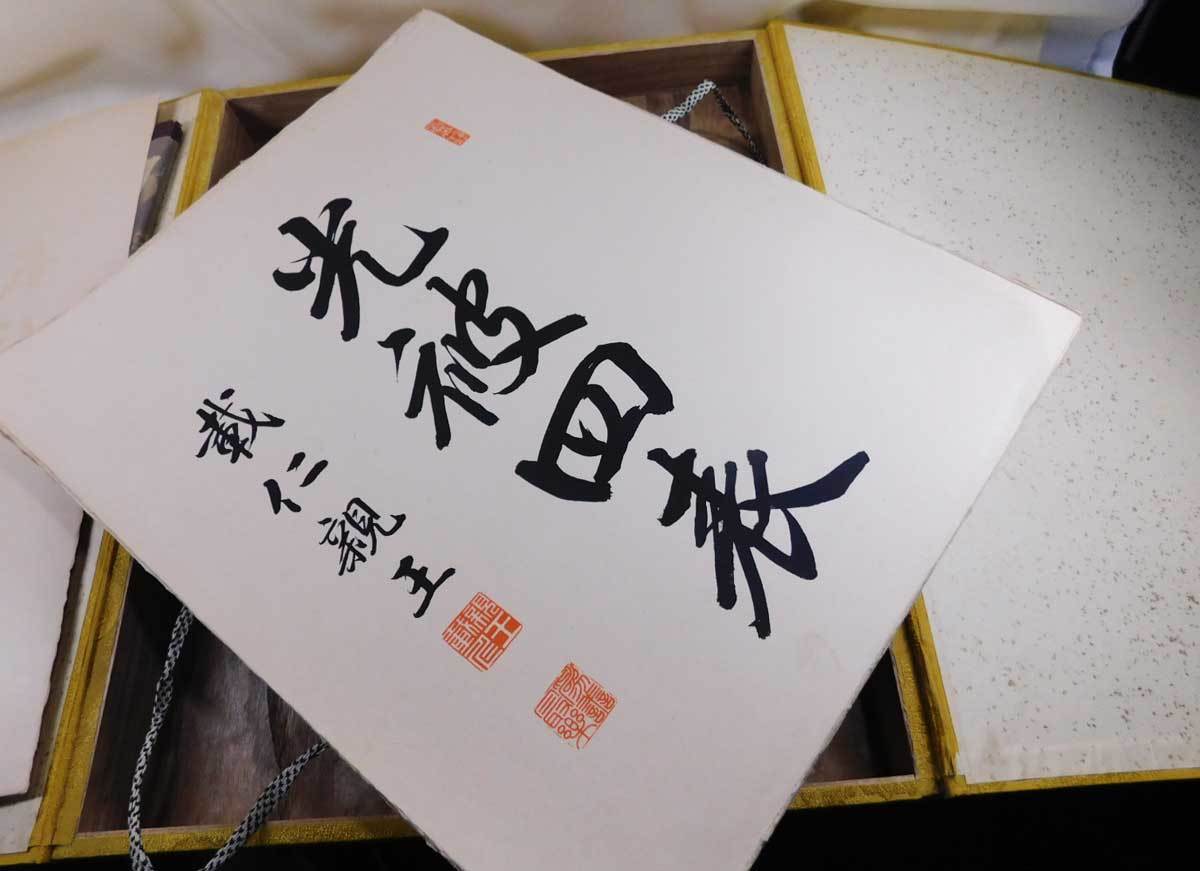 光被四表
載仁親王